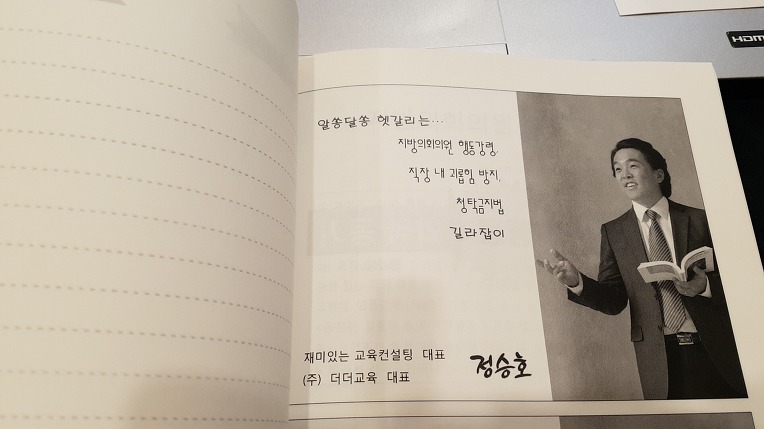 HDMI
알쏭달쏭 헷갈리는...
지방의회의원 행동강령,
직장 내 괴롭힘 방지,
청탁금지법
길라잡이
재미있는 교육컨설팅 대표
(주) 더더교육 대표
정승호